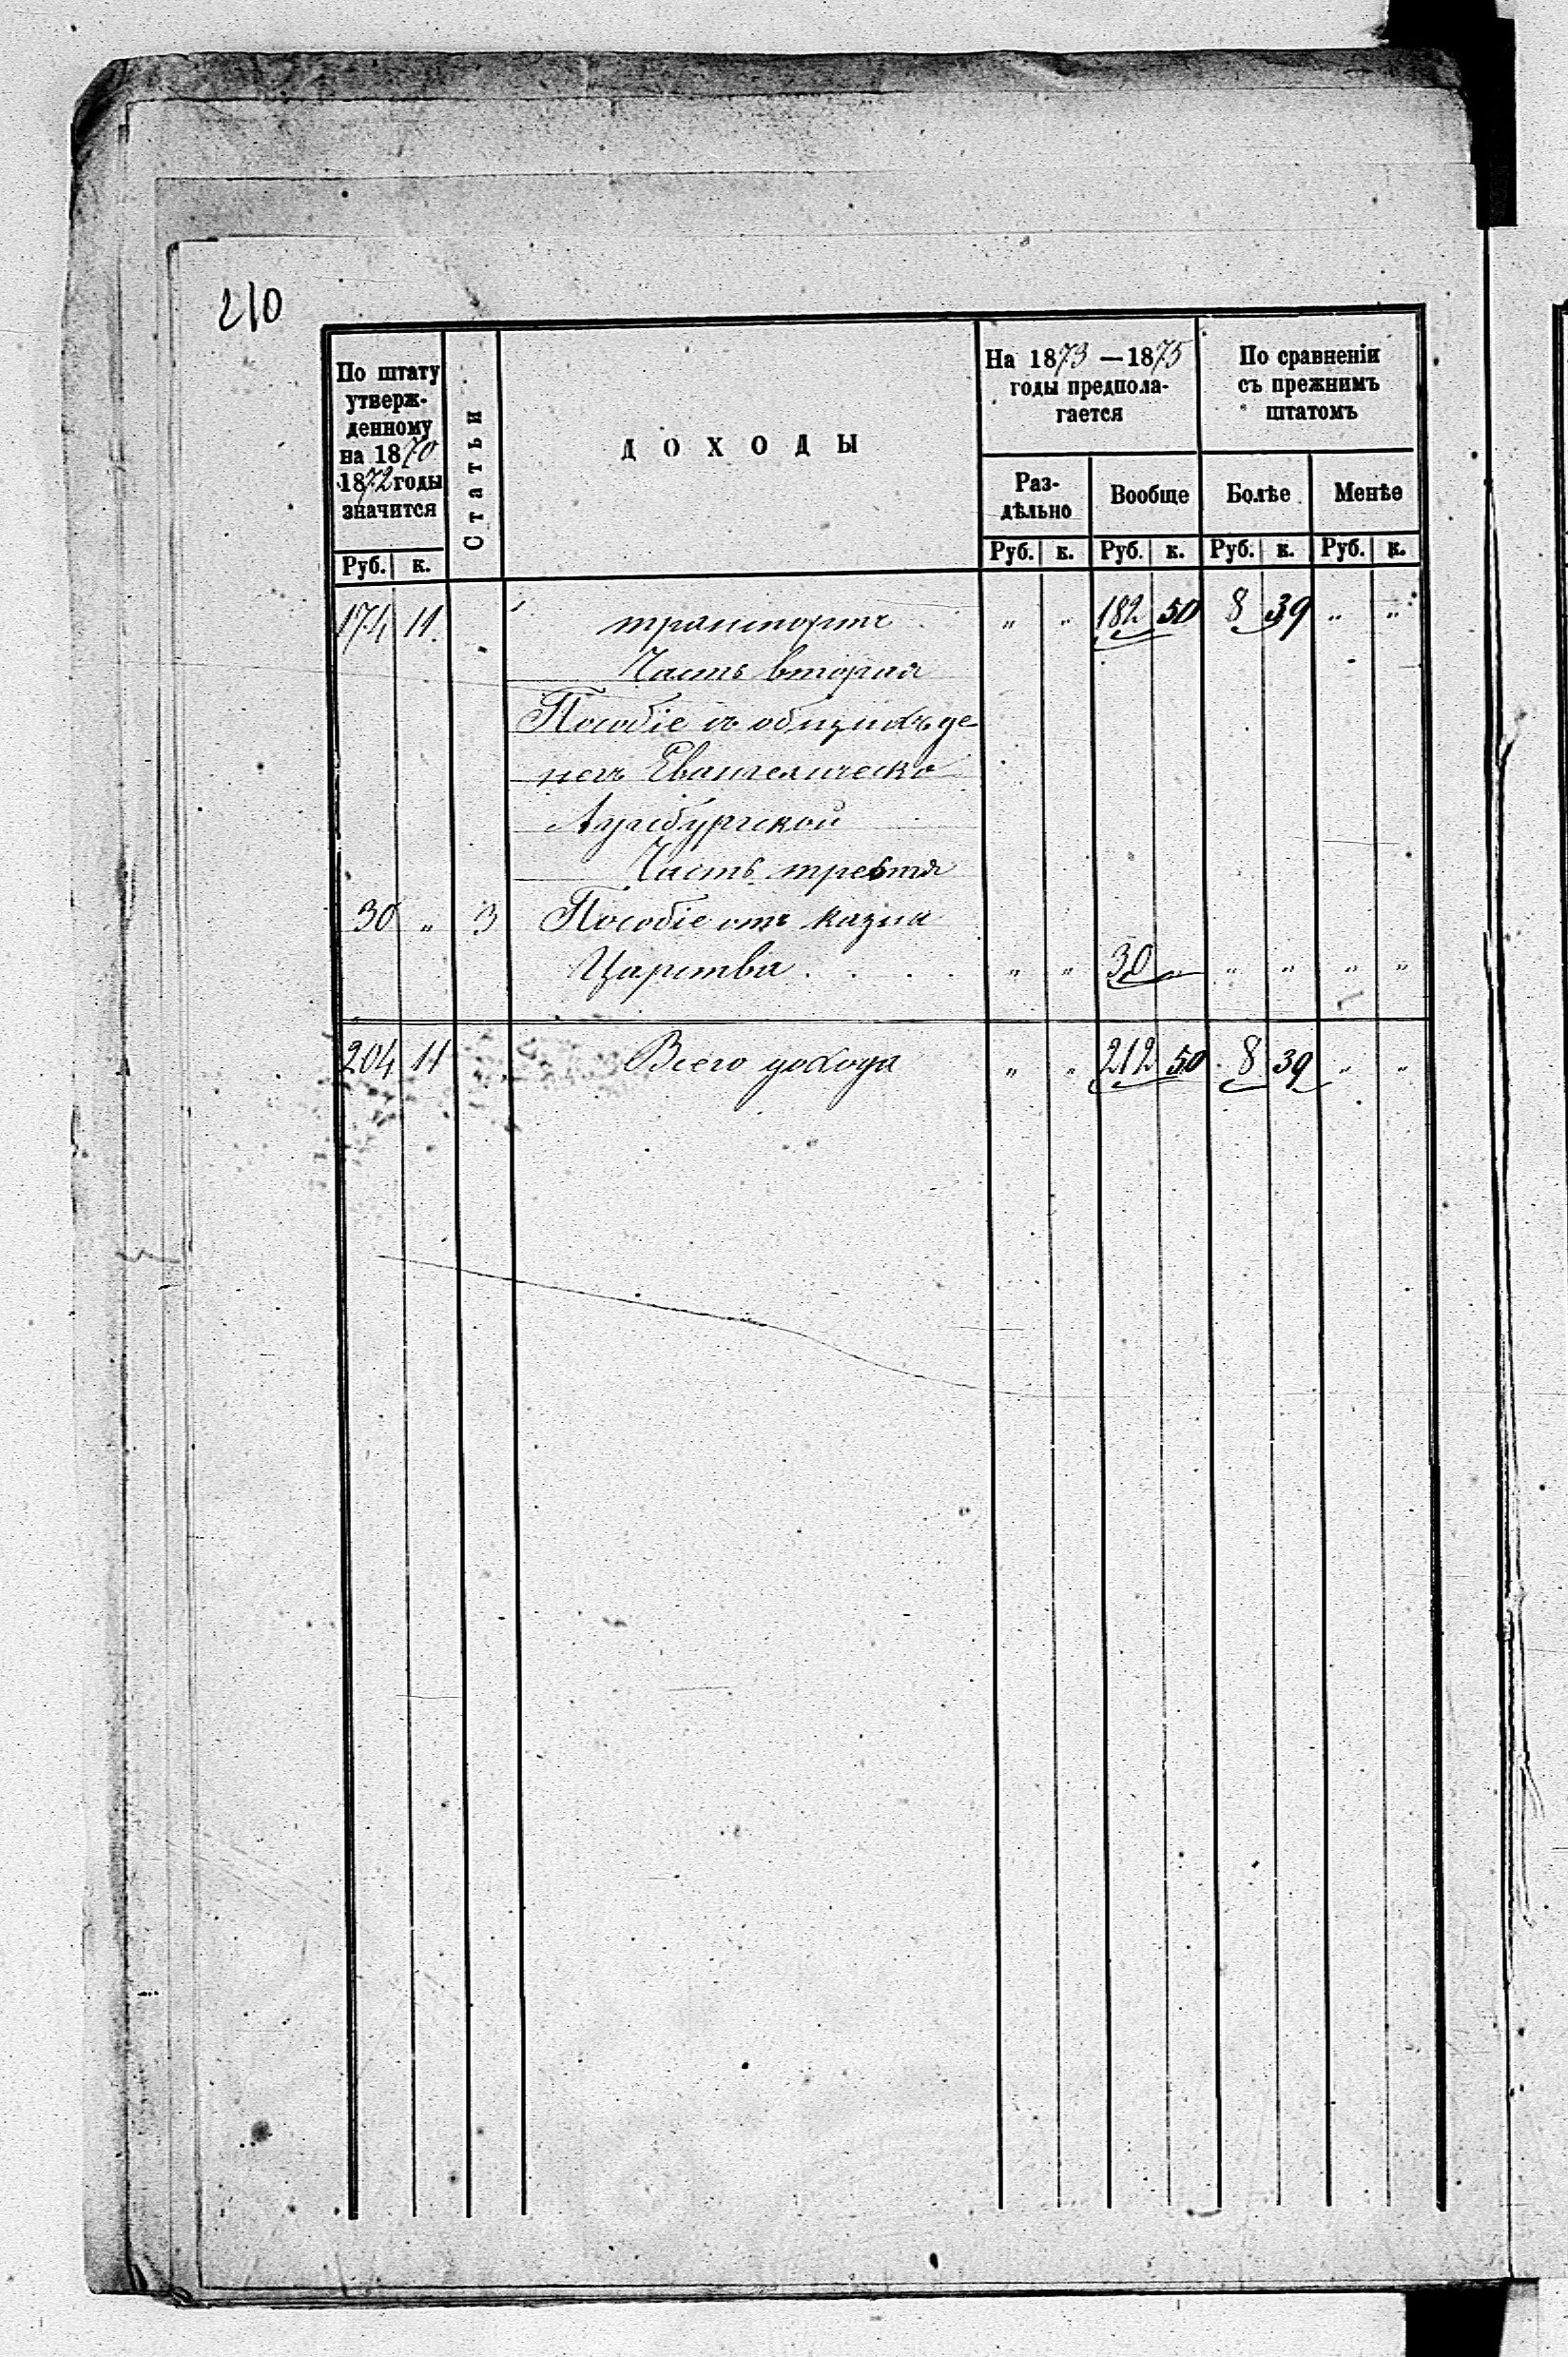 210
По штату
утверж-
денному
на 1870
1872 годы
значится
Статьи
ДОХОДЫ
На 1873 —1875
годы предпола-
гается
По сравненiи
съ прежнимъ
штатомъ
Раз-
дѣльно
Вообще
Болѣе
Менѣе
Руб. к. Руб. к. Руб. к. Руб. к. Руб. к.
174 11 транспортъ " " 182 50 8 39 " "
Часть вторая
Пособiе съ общихъ де-
негъ Евангелическо
Аугсбургской
Часть третья
30 " 3 Пособiе отъ казны
Царства . . . . " " 30 " " " " "
204 11 Всего дохода " " 212 50 8 39 " "